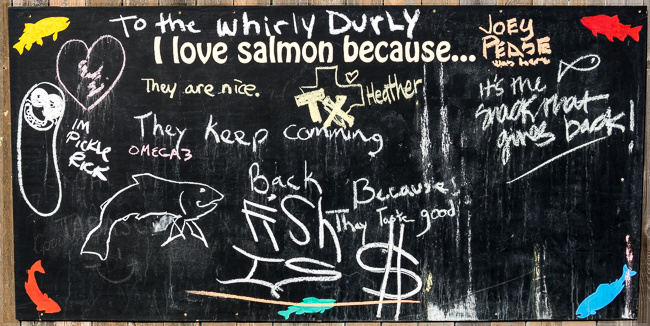 To the whirly DurLy
I love salmon because...
JOEY
PEASE
was here
They are nice.
TX
Heather
it's the
snack that
gives back!
IM
PICKLE
RICK
They Keep comming
OMEGA 3
Back
Because
They Taste good
FISH
IS $